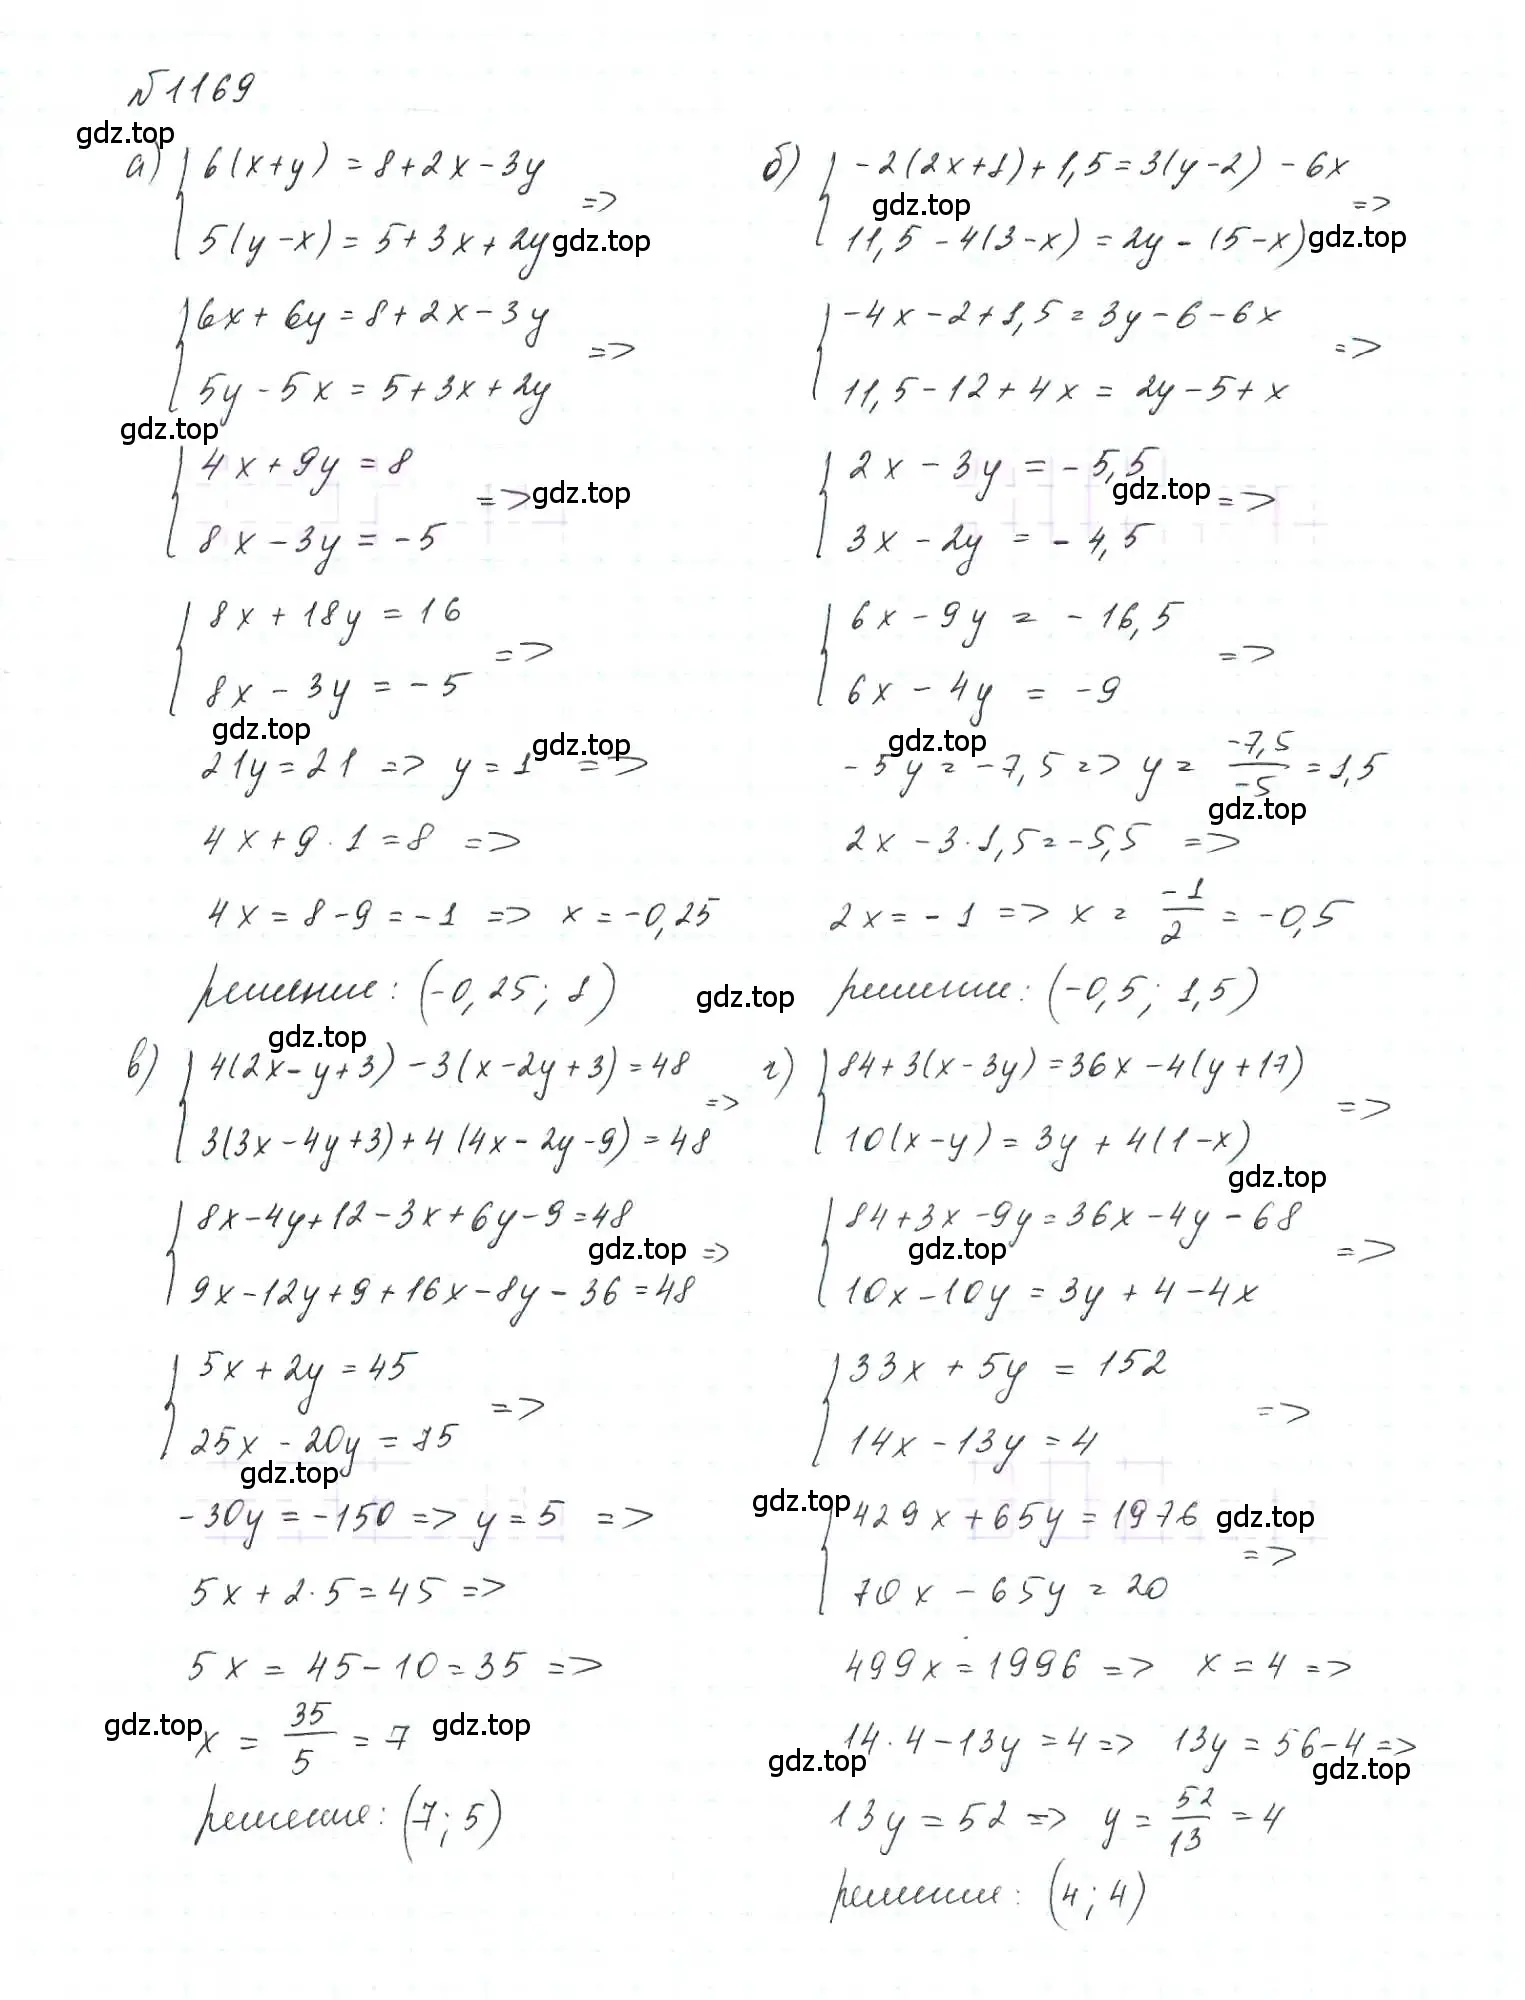 №1169
gdz.top
а) { 6(x+y) = 8+2x-3y
5(y-x) = 5+3x+2y =>
gdz.top
{ 6x+6y = 8+2x-3y
5y-5x = 5+3x+2y =>
gdz.top
{ 4x+9y = 8
8x-3y = -5 =>
gdz.top
{ 8x+18y = 16
8x-3y = -5 =>
gdz.top
21y = 21 => y = 1 =>
gdz.top
4x+9·1 = 8 =>
4x = 8-9 = -1 => x = -0,25
решение: (-0,25; 1)
gdz.top
б) { -2(2x+1)+1,5 = 3(y-2)-6x
gdz.top
11,5-4(3-x) = 2y-(5-x) =>
gdz.top
{ -4x-2+1,5 = 3y-6-6x
11,5-12+4x = 2y-5+x =>
{ 2x-3y = -5,5
gdz.top
3x-2y = -4,5 =>
{ 6x-9y = -16,5
6x-4y = -9 =>
gdz.top
-5y = -7,5 => y = -7,5/-5 = 1,5
gdz.top
2x-3·1,5 = -5,5 =>
2x = -1 => x = -1/2 = -0,5
решение: (-0,5; 1,5)
gdz.top
в) { 4(2x-y+3)-3(x-2y+3) = 48
3(3x-4y+3)+4(4x-2y-9) = 48 =>
{ 8x-4y+12-3x+6y-9 = 48
gdz.top
9x-12y+9+16x-8y-36 = 48 =>
{ 5x+2y = 45
25x-20y = 75 =>
gdz.top
-30y = -150 => y = 5 =>
5x+2·5 = 45 =>
5x = 45-10 = 35 =>
gdz.top
x = 35/5 = 7
gdz.top
решение: (7; 5)
г) { 84+3(x-3y) = 36x-4(y+17)
10(x-y) = 3y+4(1-x) =>
gdz.top
{ 84+3x-9y = 36x-4y-68
gdz.top
10x-10y = 3y+4-4x =>
{ 33x+5y = 152
14x-13y = 4 =>
gdz.top
{ 429x+65y = 1976
gdz.top
70x-65y = 20 =>
499x = 1996 => x = 4 =>
14·4-13y = 4 => 13y = 56-4 =>
gdz.top
gdz.top
13y = 52 => y = 52/13 = 4
решение: (4; 4)